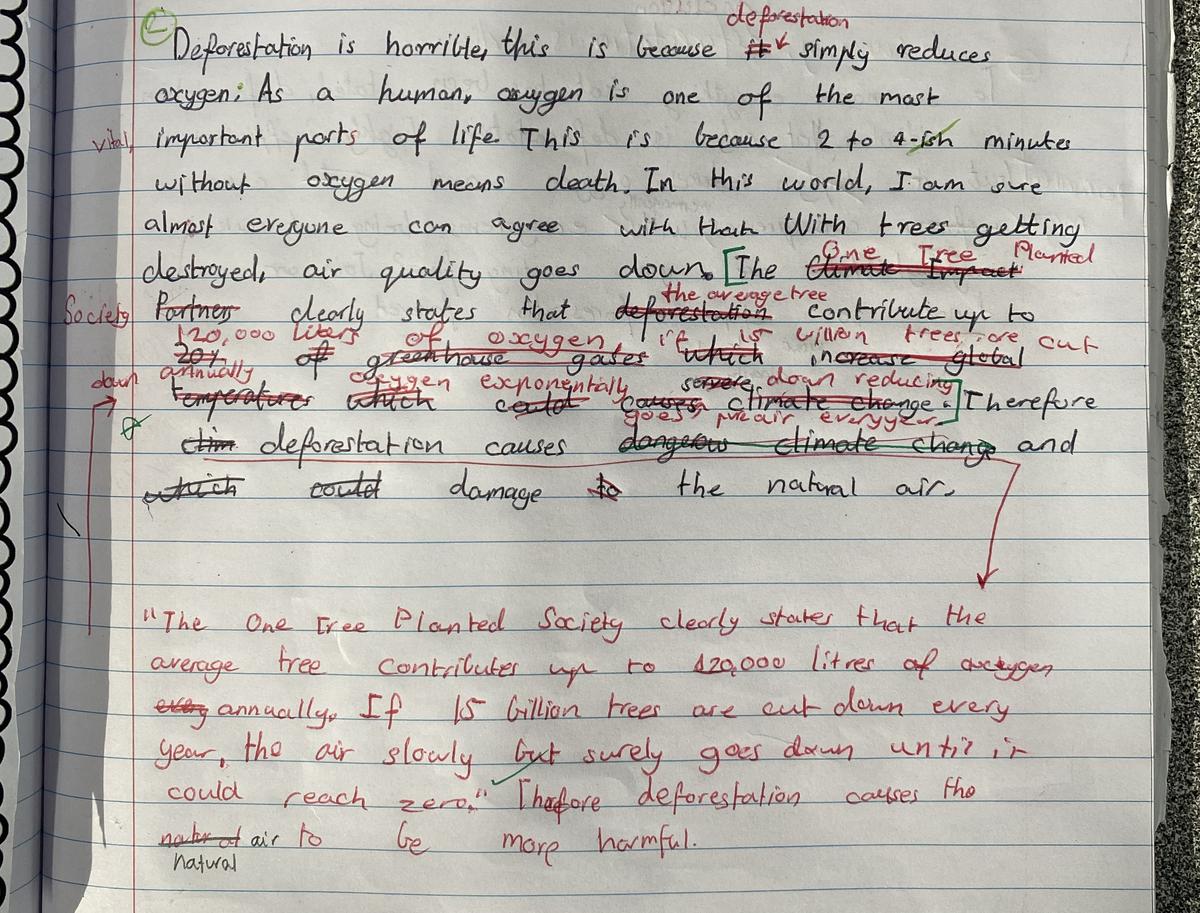 deforestation
2 Deforestation is horrible, this is because it simply reduces
oxygen. As a human, oxygen is one of the most
vital important parts of life. This is because 2 to 4-ish minutes
without oxygen means death. In this world, I am sure
almost everyone can agree with that. With trees getting
One Tree Planted
destroyed, air quality goes down. [The Climate Impact
the average tree
Society Partners clearly states that deforestation contribute up to
120,000 liters of oxygen, if 15 billion trees are cut
20% of greenhouse gases which increase global
down annually oxygen exponentially servere down reducing
temperatures which could causes climate change.] Therefore
goes pure air every year.
clim deforestation causes dangeous climate change and
which could damage to the natural air.
"The One Tree Planted Society clearly states that the
average tree contributes up to 120,000 litres of oxygen
every annually. If 15 billion trees are cut down every
year, the air slowly but surely goes down until it
could reach zero." Thefore deforestation causes the
natural air to be more harmful.
natural